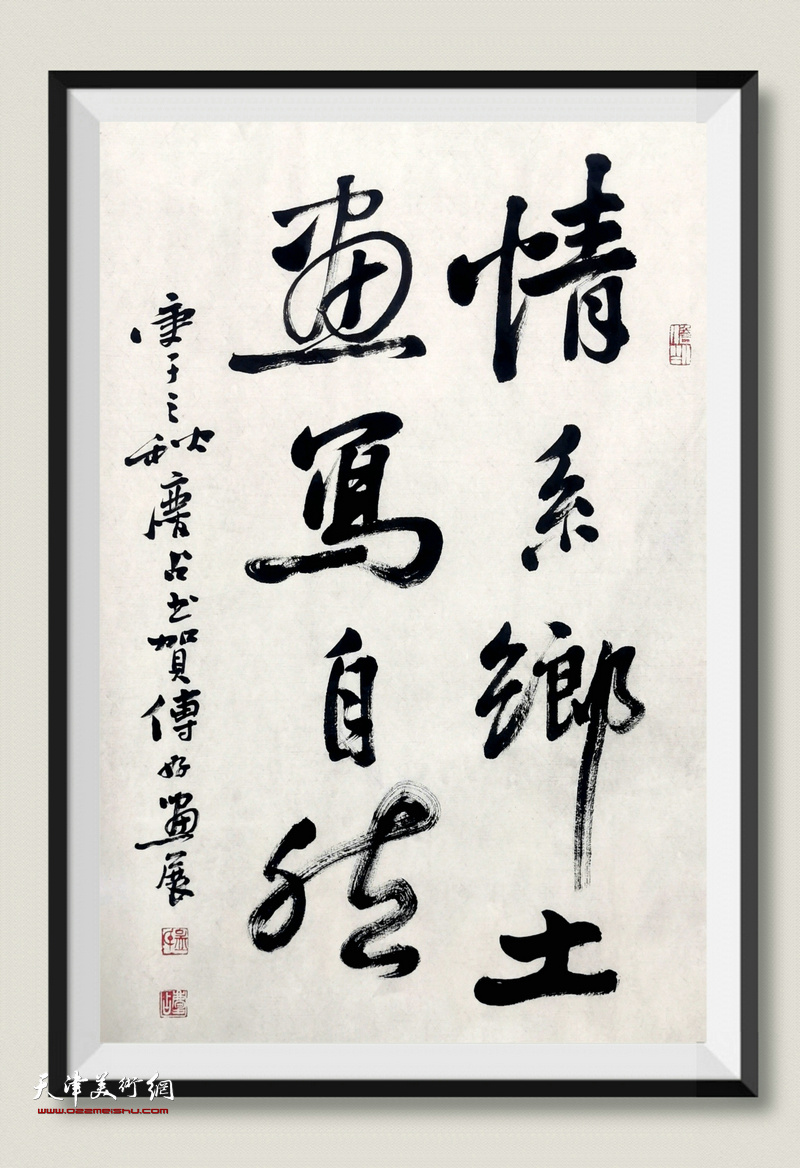 情系鄉土
畫寫自然
庚子之秋唐占书賀傅好畫展
天津美術網
www.022meishu.com